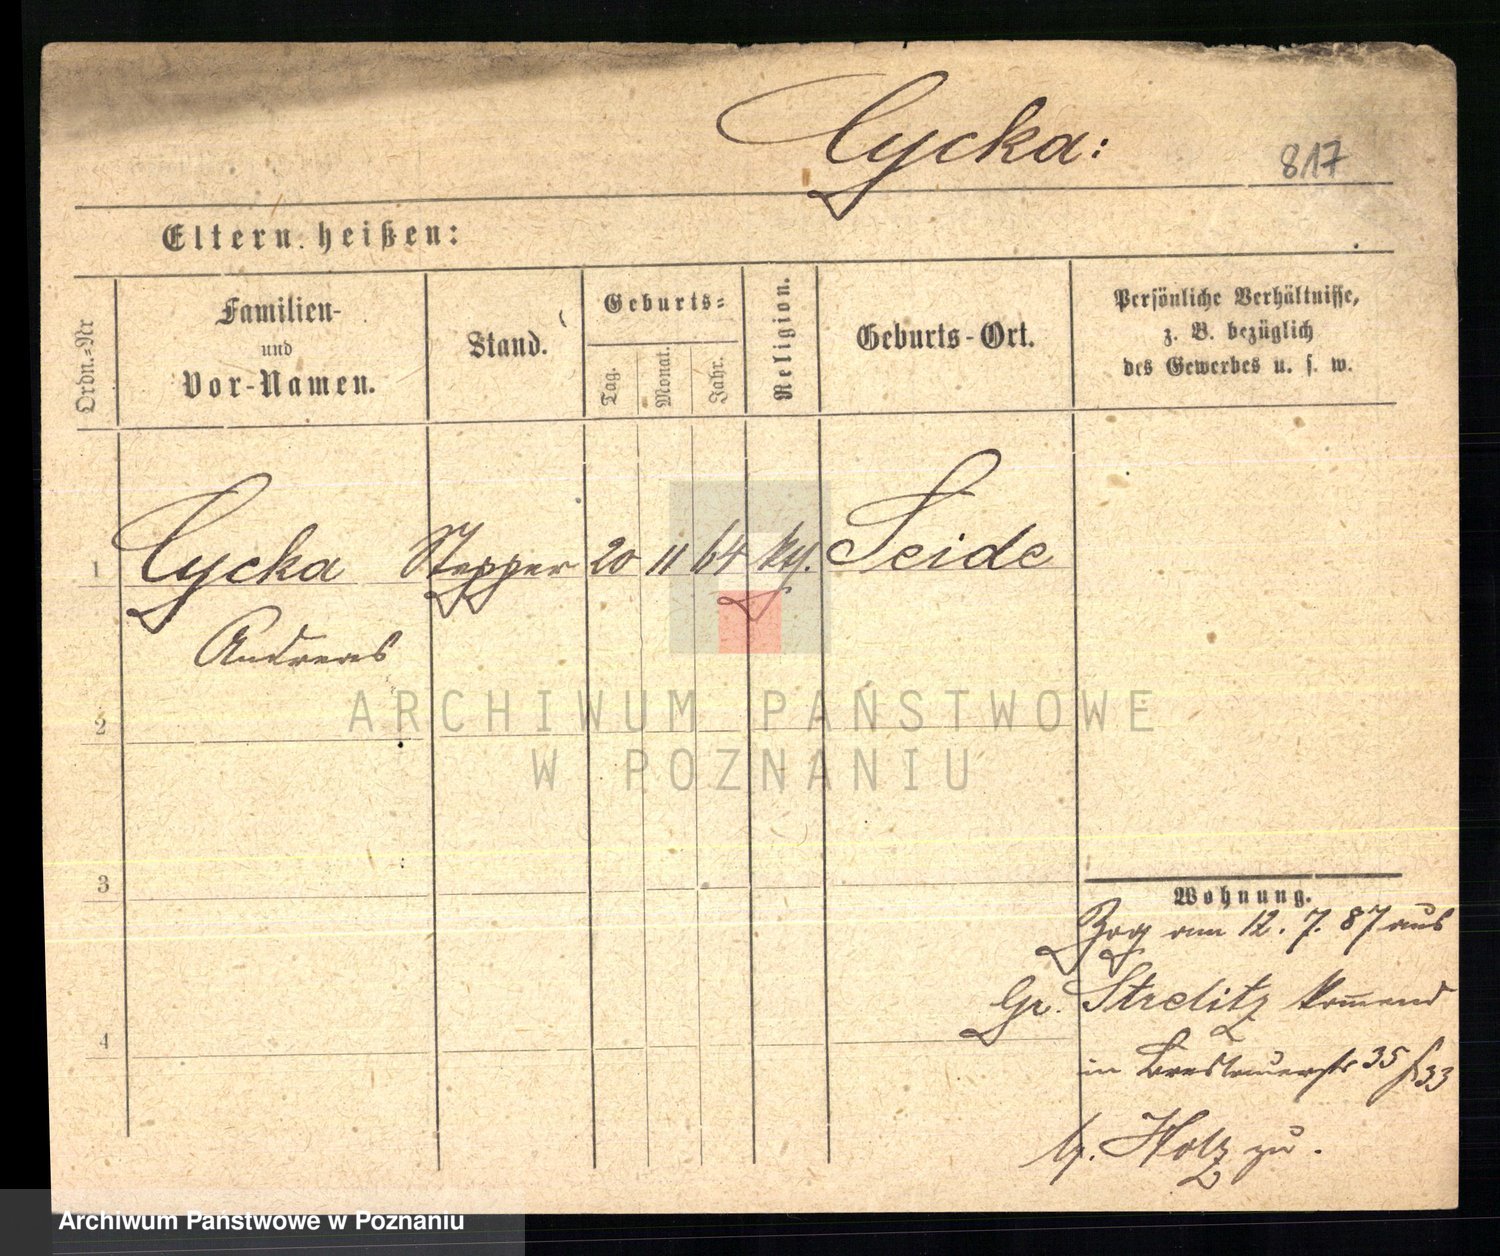 Cycka:
817
Eltern heißen:
Ordn.=Nr
Familien-
und
Vor-Namen.
Stand.
Geburts=
Tag.
Monat.
Jahr.
Religion.
Geburts-Ort.
Persönliche Verhältnisse,
z. B. bezüglich
des Gewerbes u. s. w.
1 Cycka Stepper 20 11 64 Seide
Andreas
2
3
4
Wohnung.
Zog am 12. 7. 87 aus
Gr. Strelitz kommend
in Breslauerstr 35
b. Holz zu.
ARCHIWUM PAŃSTWOWE
W POZNANIU
Archiwum Państwowe w Poznaniu